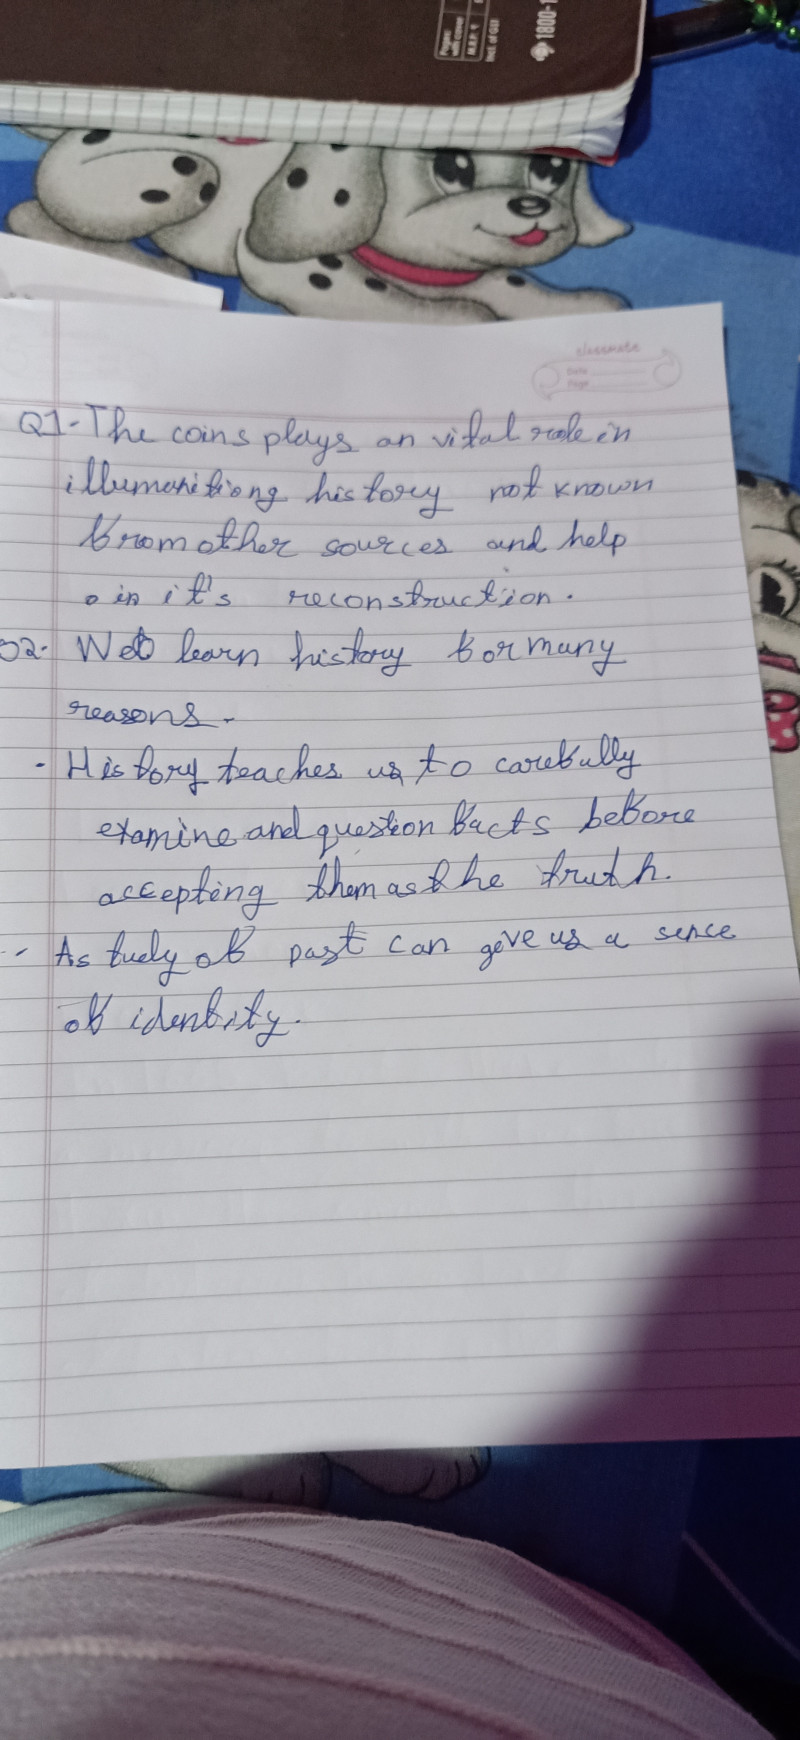 Pages
M.R.P. ₹
Incl. of GST
1800-1
classmate
Date
Page
Q1-The coins plays an vital role in
illumanitiong history not known
from other sources and help
in it's reconstruction.
Q2. We learn history for many
reasons.
- History teaches us to carefully
examine and question facts before
accepting them as the truth.
- As tudy of past can give us a sence
of identity.